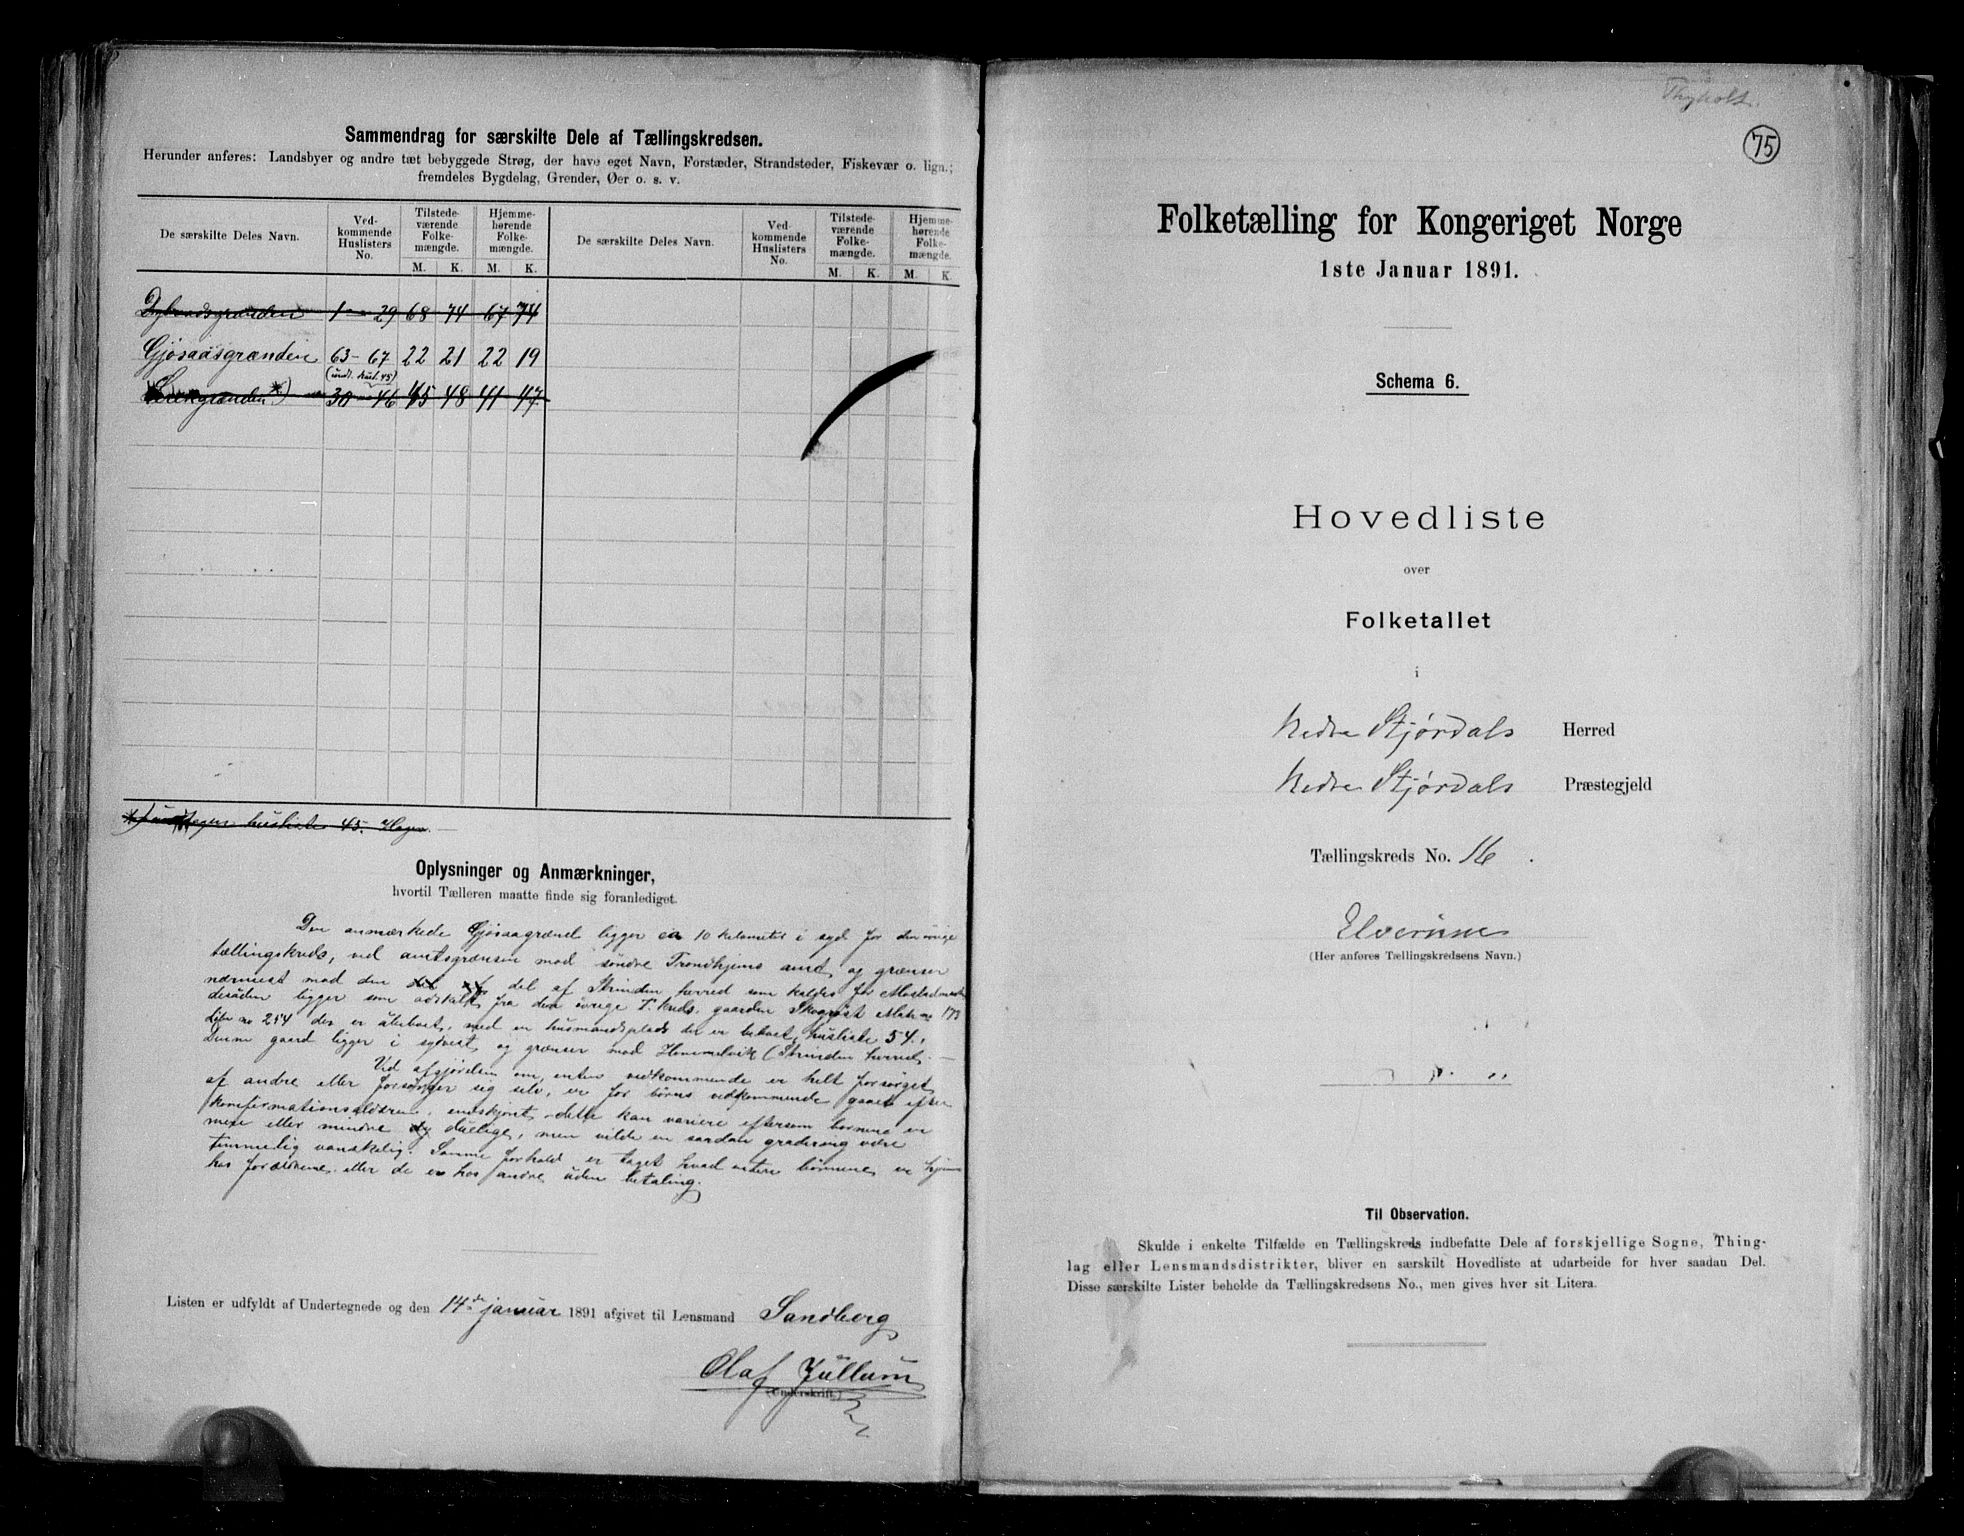 Sammendrag for særskilte Dele af Tællingskredsen.
Herunder anføres: Landsbyer og andre tæt bebyggede Strøg, der have eget Navn, Forstæder, Strandsteder, Fiskevær o. lign.;
fremdeles Bygdelag, Grender, Øer o. s. v.
De særskilte Deles Navn.
Ved-
kommende
Huslisters
No.
Tilstede-
værende
Folke-
mængde.
Hjemme-
hørende
Folke-
mængde.
M. K. M. K.
De særskilte Deles Navn.
Ved-
kommende
Huslisters
No.
Tilstede-
værende
Folke-
mængde.
Hjemme-
hørende
Folke-
mængde.
M. K. M. K.
1 29 68 74 67 74
Gjøsaasgrænden 63-67 22 21 22 19
(undt. husl. 45)
30 46 45 48 41 47
husliste 45. Hagen.
Oplysninger og Anmærkninger,
hvortil Tælleren maatte finde sig foranlediget.
Den anmærkede Gjøsaagrænd ligger ca 10 kilometer i syd for den øvrige
tællingskreds, ved amtsgrænsen mod søndre Trondhjems amt, og grænser
nærmest mod den del af Strinden herred som kaldes for
desuden ligger som adskilt fra den øvrige T. kreds. gaarden Matr no 173
Løbe no 254 der er ubeboet, med en husmandsplads der er beboet, husliste 54.
Denne gaard ligger i sydvest, og grænser mod Hommelvik (Strinden herred.
Ved afgjørelsen om, enten vedkommende er helt forsørget
af andre eller forsørger sig selv, er for børns vedkommende gaaet efter
konfirmationsalderen, endskjønt dette kan variere eftersom børnene er
mere eller mindre duelige, men vilde en saadan gradering være
temmelig vanskelig. Samme forhold er taget hvad enten børnene er hjemme
hos forældrene eller de er hos andre uden betaling.
Listen er udfyldt af Undertegnede og den 14de januar 1891 afgivet til Lensmand Sandberg
Olaf Jullum
(Underskrift.)
75
Folketælling for Kongeriget Norge
1ste Januar 1891.
Schema 6.
Hovedliste
over
Folketallet
i
Nedre Stjørdals Herred
Nedre Stjørdals Præstegjeld
Tællingskreds No. 16.
(Her anføres Tællingskredsens Navn.)
Til Observation.
Skulde i enkelte Tilfælde en Tællingskreds indbefatte Dele af forskjellige Sogne, Thing-
lag eller Lensmandsdistrikter, bliver en særskilt Hovedliste at udarbeide for hver saadan Del.
Disse særskilte Lister beholde da Tællingskredsens No., men gives hver sit Litera.